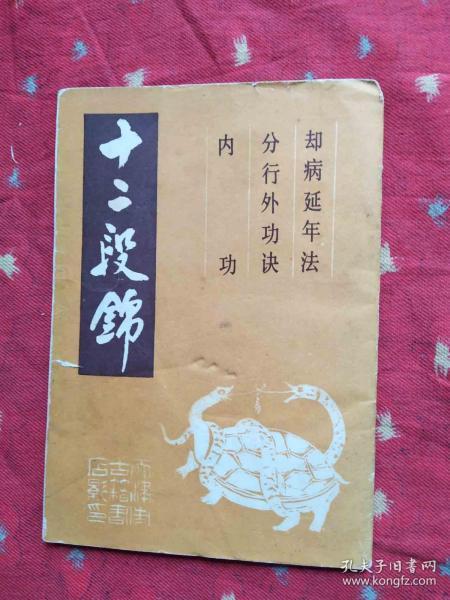 却病延年法
分行外功诀
内功
十二段錦
天津市
古籍書
店影印
孔夫子旧书网
www.kongfz.com